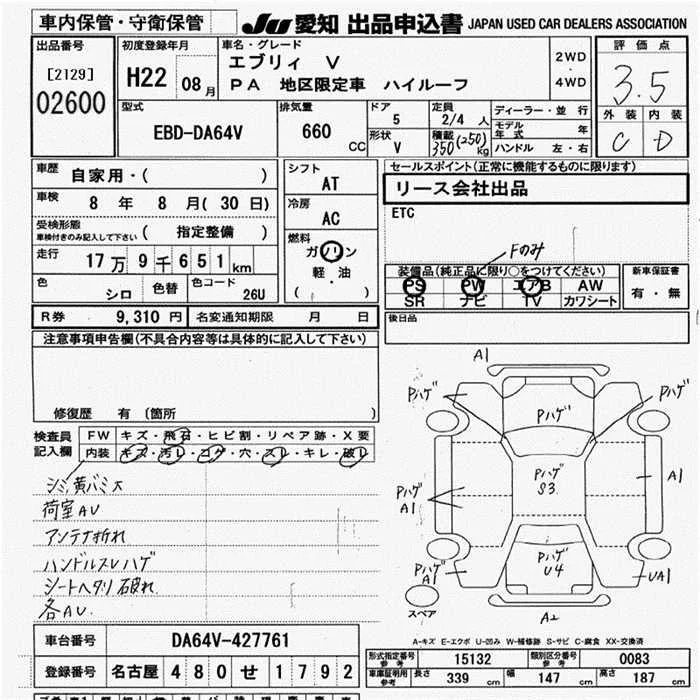 車内保管・守衛保管
JU 愛知 出品申込書 JAPAN USED CAR DEALERS ASSOCIATION
出品番号
[2129]
02600
初度登録年月
H22 08月
車名・グレード
エブリィ V
PA 地区限定車 ハイルーフ
2WD
・
4WD
評価点
3.5
外装 内装
C D
型式
EBD-DA64V
排気量
660 CC
ドア
5
形状
V
定員
2/4 人
積載
350(250)kg
ディーラー・並行
モデル年式 年
ハンドル 左・右
車歴
自家用・( )
車検
8 年 8 月(30日)
受検形態
車検付きのみ記入して下さい ( 指定整備 )
走行
17万9千651km
色
シロ
色替
色コード
26U
シフト
AT
冷房
AC
燃料
ガソリン
軽・油
( )
セールスポイント(正常に機能するものに限ります)
リース会社出品
ETC
Fのみ
装備品(純正品に限り○をつけてください)
PS PW エアB AW
SR ナビ TV カワシート
新車保証書
有・無
R券 9,310 円
名変通知期限 月 日
後日品
注意事項申告欄(不具合内容等は具体的に記入して下さい)
修復歴 有 〔箇所 〕
検査員
記入欄
FW キズ・飛石・ヒビ割・リペア跡・X要
内装 キズ・汚レ・コゲ・穴・スレ・キレ・破レ
シミ、黄バミ大
荷室AU
アンテナ折れ
ハンドルスレハゲ
シートヘタリ 破れ
各AU.
A1
Pハゲ
Pハゲ
Pハゲ
Pハゲ
S3
Pハゲ
A1
A1
Pハゲ
A1
Pハゲ
U4
UA1
スペア
A2
A-キズ E-エクボ U-凹み W-補修跡 S-サビ C-腐食 XX-交換済
車台番号 DA64V-427761
登録番号 名古屋 480 せ 1792
型式指定番号
参考
15132
類別区分番号
参考
0083
車庫証明用
参考
長さ 339 cm
幅 147 cm
高さ 187 cm